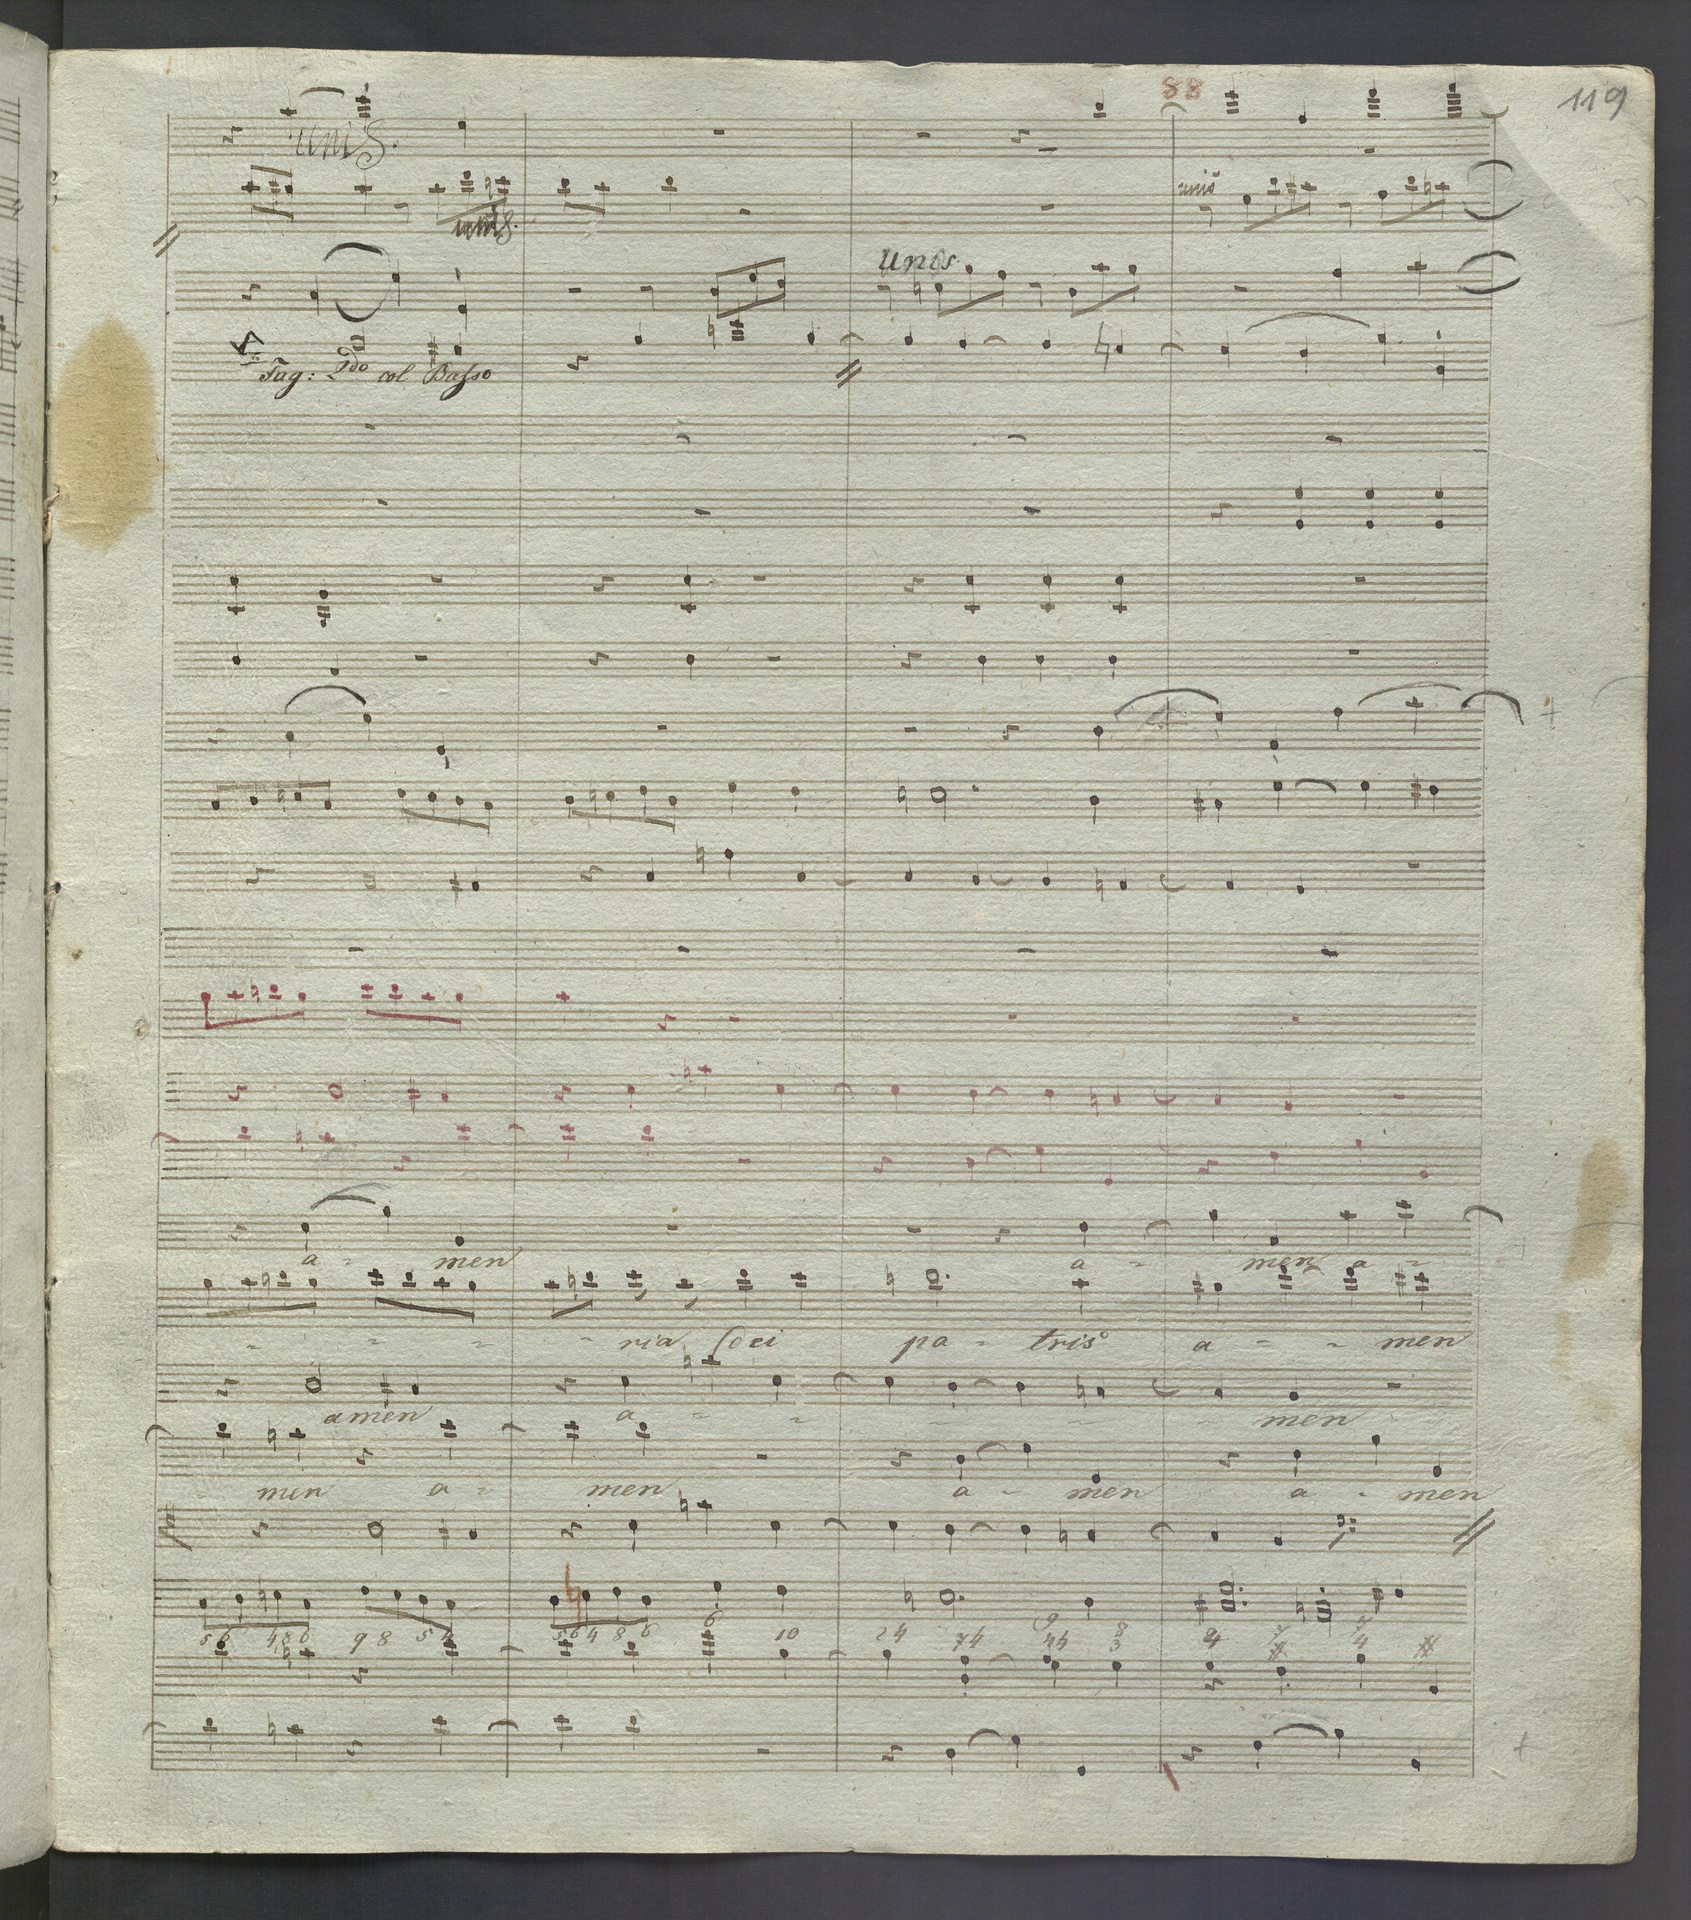 119
unis.
unis
unis.
unis
Fag: 2do col Basso
a - men a - men a -
- - - - ria Dei pa - tris a - - men
amen a - - men
- men a - men a - men a - men
5 6 4 8 6 9 8 5 4 5 6 4 8 6 6 10 2 4 7 4 9 4 4 8 3